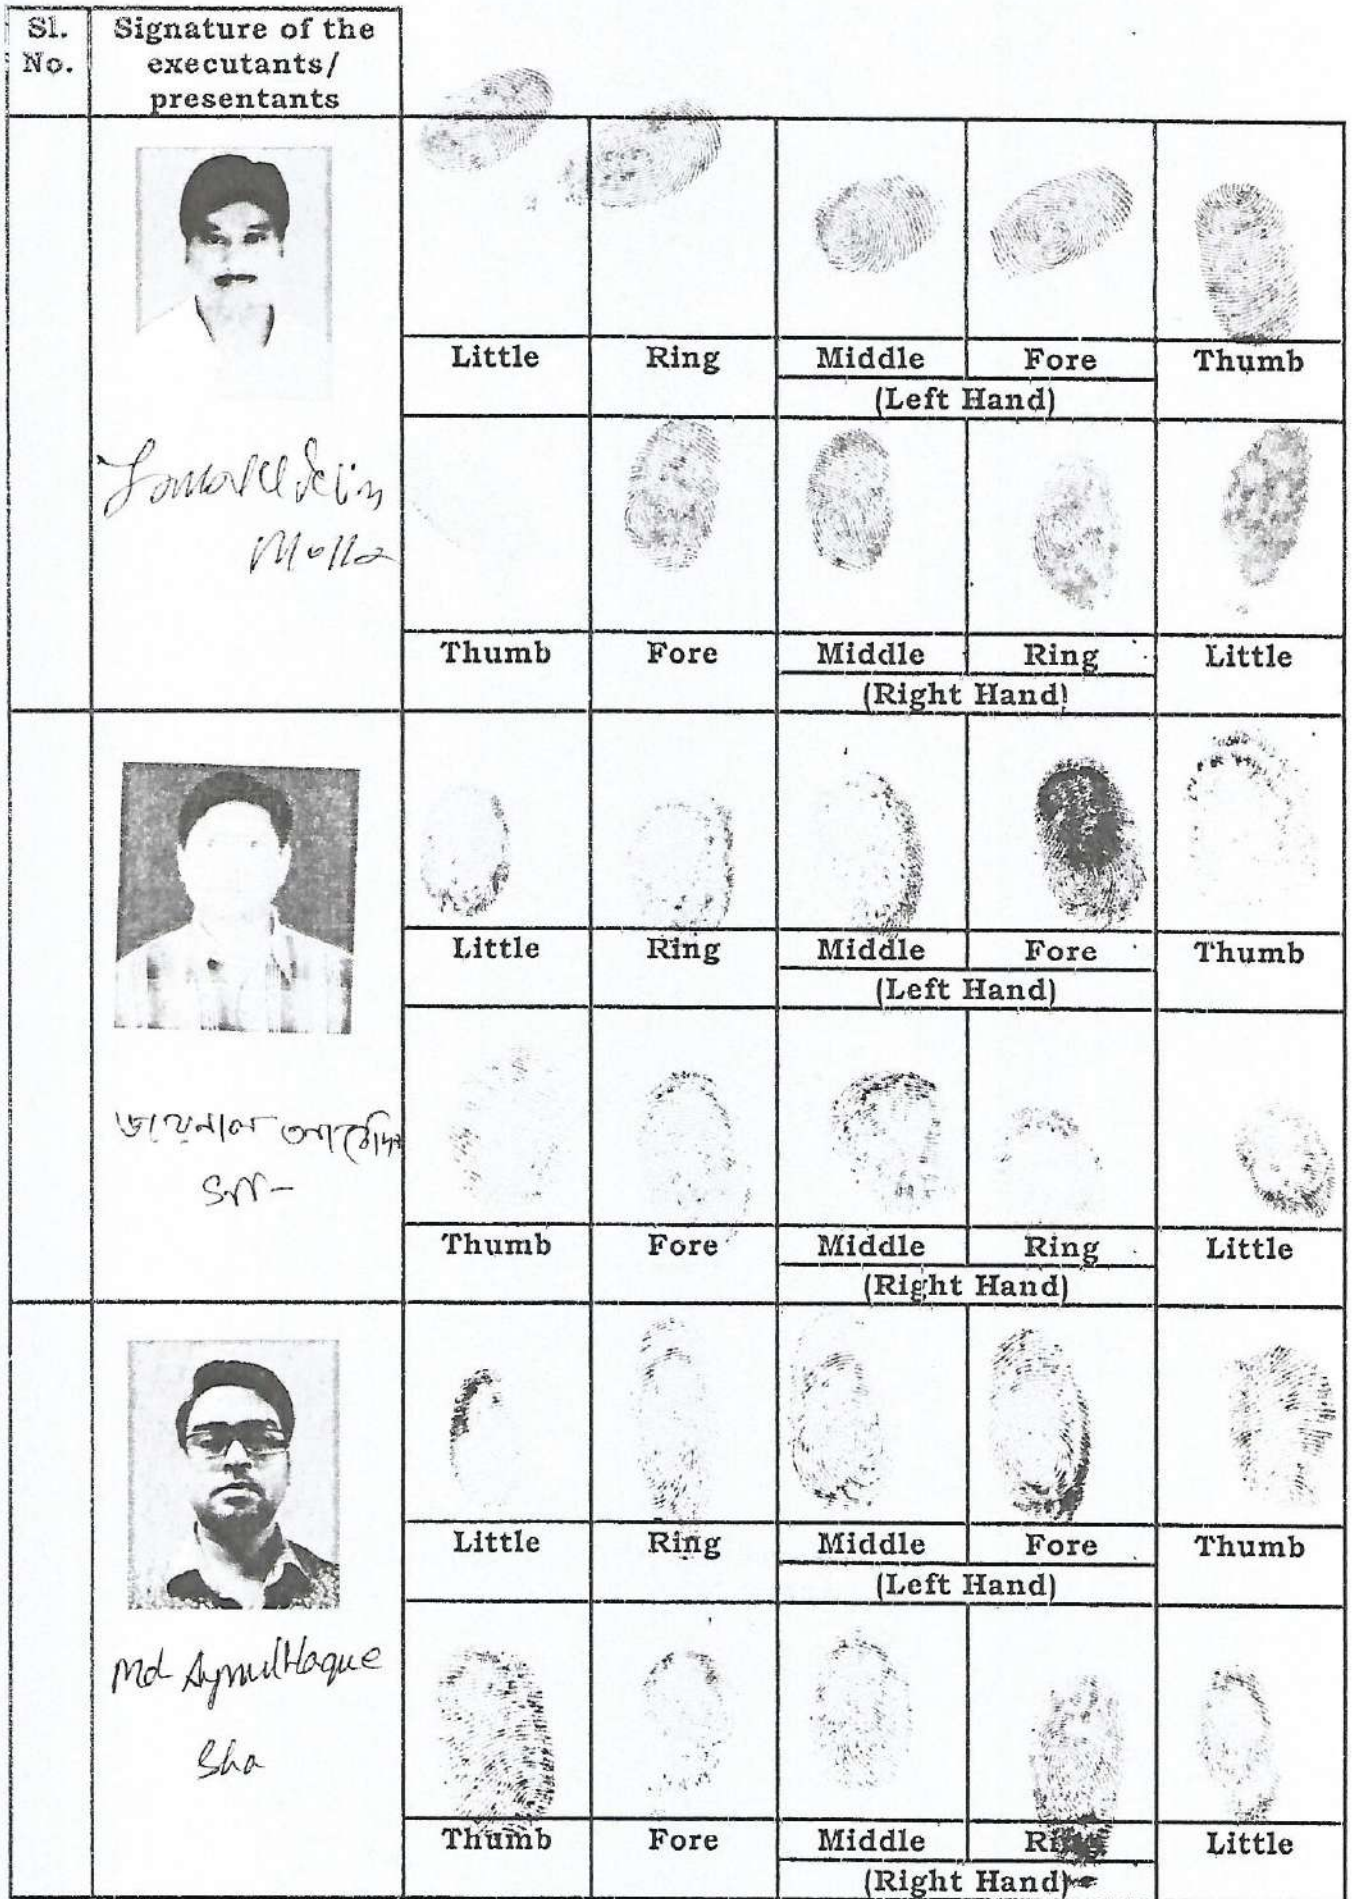 Sl. No.
Signature of the executants/ presentants
Little Ring Middle Fore Thumb
(Left Hand)
Molla
Thumb Fore Middle Ring Little
(Right Hand)
Little Ring Middle Fore Thumb
(Left Hand)
Thumb Fore Middle Ring Little
(Right Hand)
Little Ring Middle Fore Thumb
(Left Hand)
Md Haque
Sha
Thumb Fore Middle Ring Little
(Right Hand)